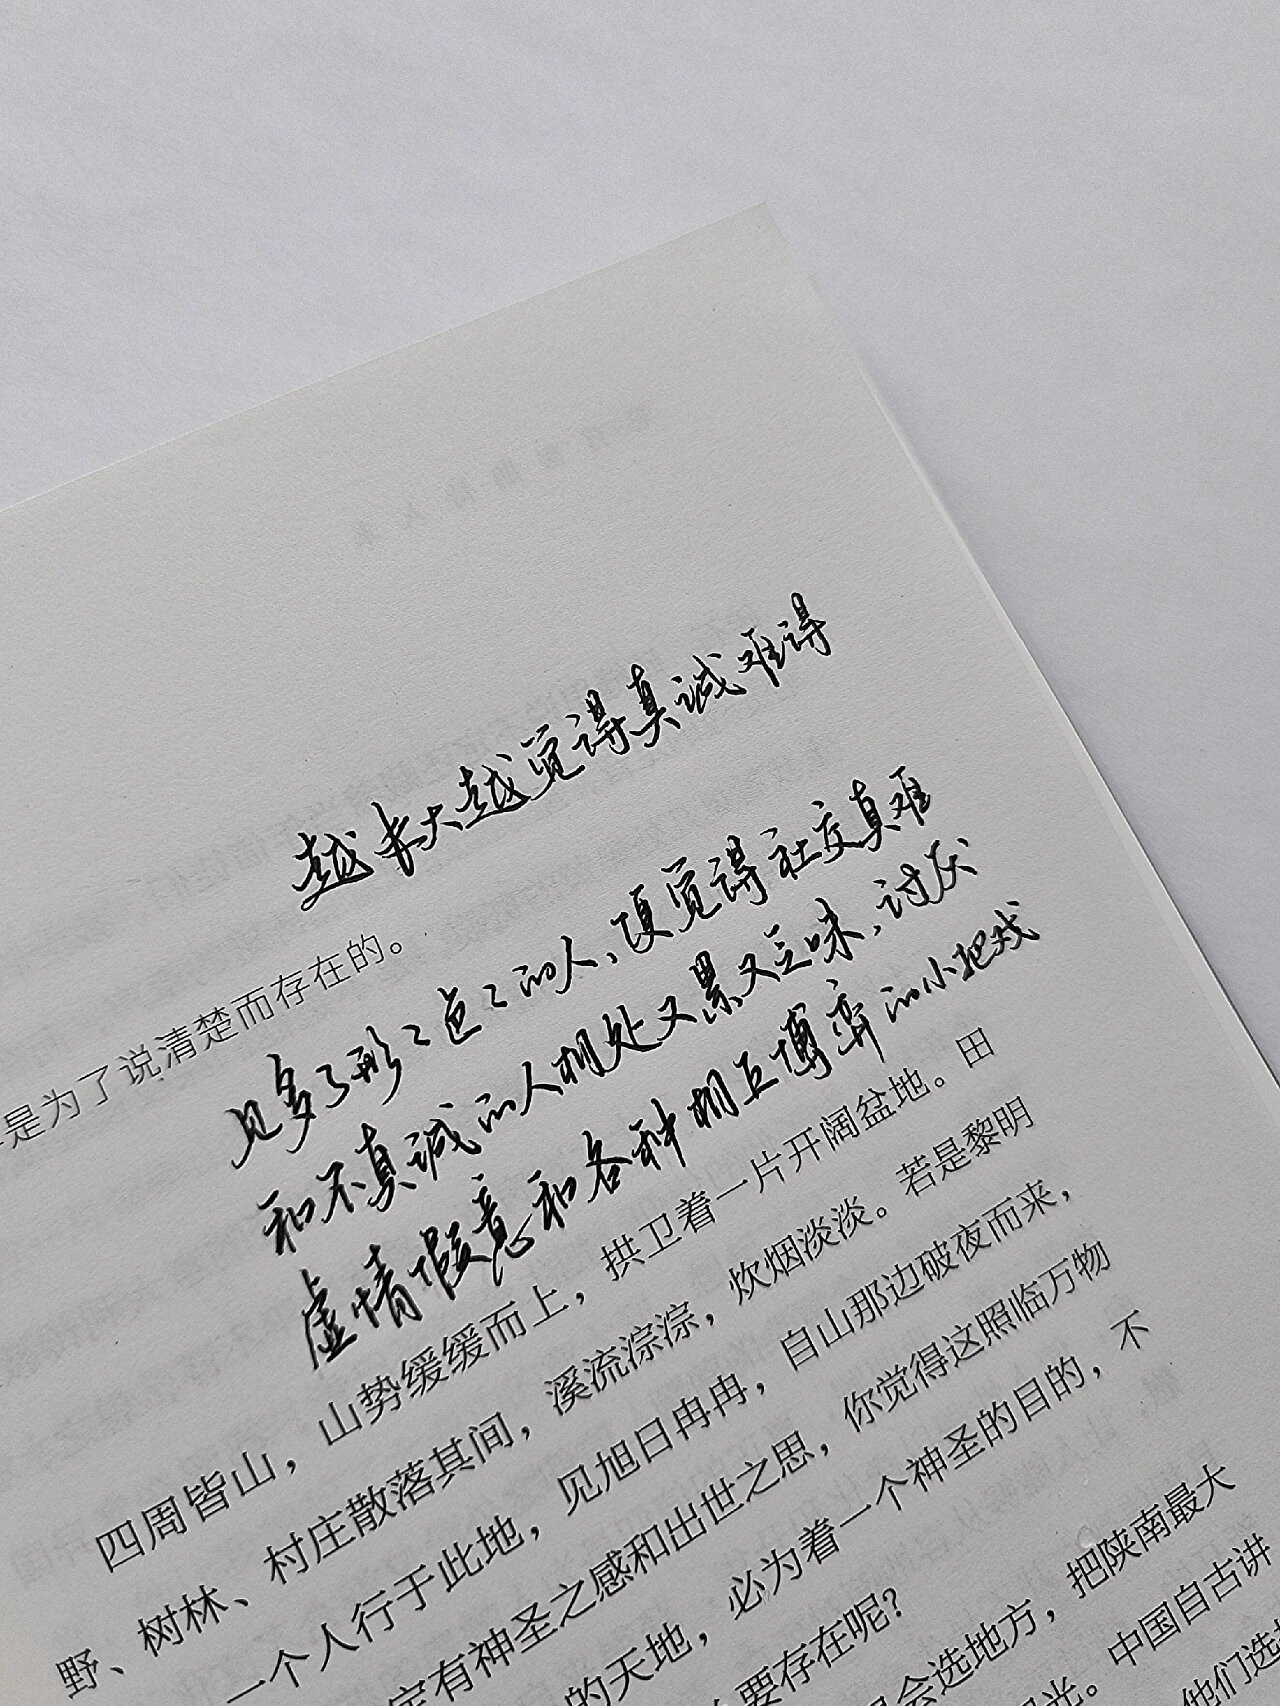 越长大越觉得真诚难得
是为了说清楚而存在的。
见多了形形色色的人,顿觉得社交真难
和不真诚的人相处又累又乏味,讨厌
虚情假意和各种相互博弈的小把戏
四周皆山，山势缓缓而上，拱卫着一片开阔盆地。田
野、树林、村庄散落其间，溪流淙淙，炊烟淡淡。若是黎明
一个人行于此地，见旭日冉冉，自山那边破夜而来，
定有神圣之感和出世之思，你觉得这照临万物
的天地，必为着一个神圣的目的，不
要存在呢？
会选地方，把陕南最大
光。中国自古讲
他们选择